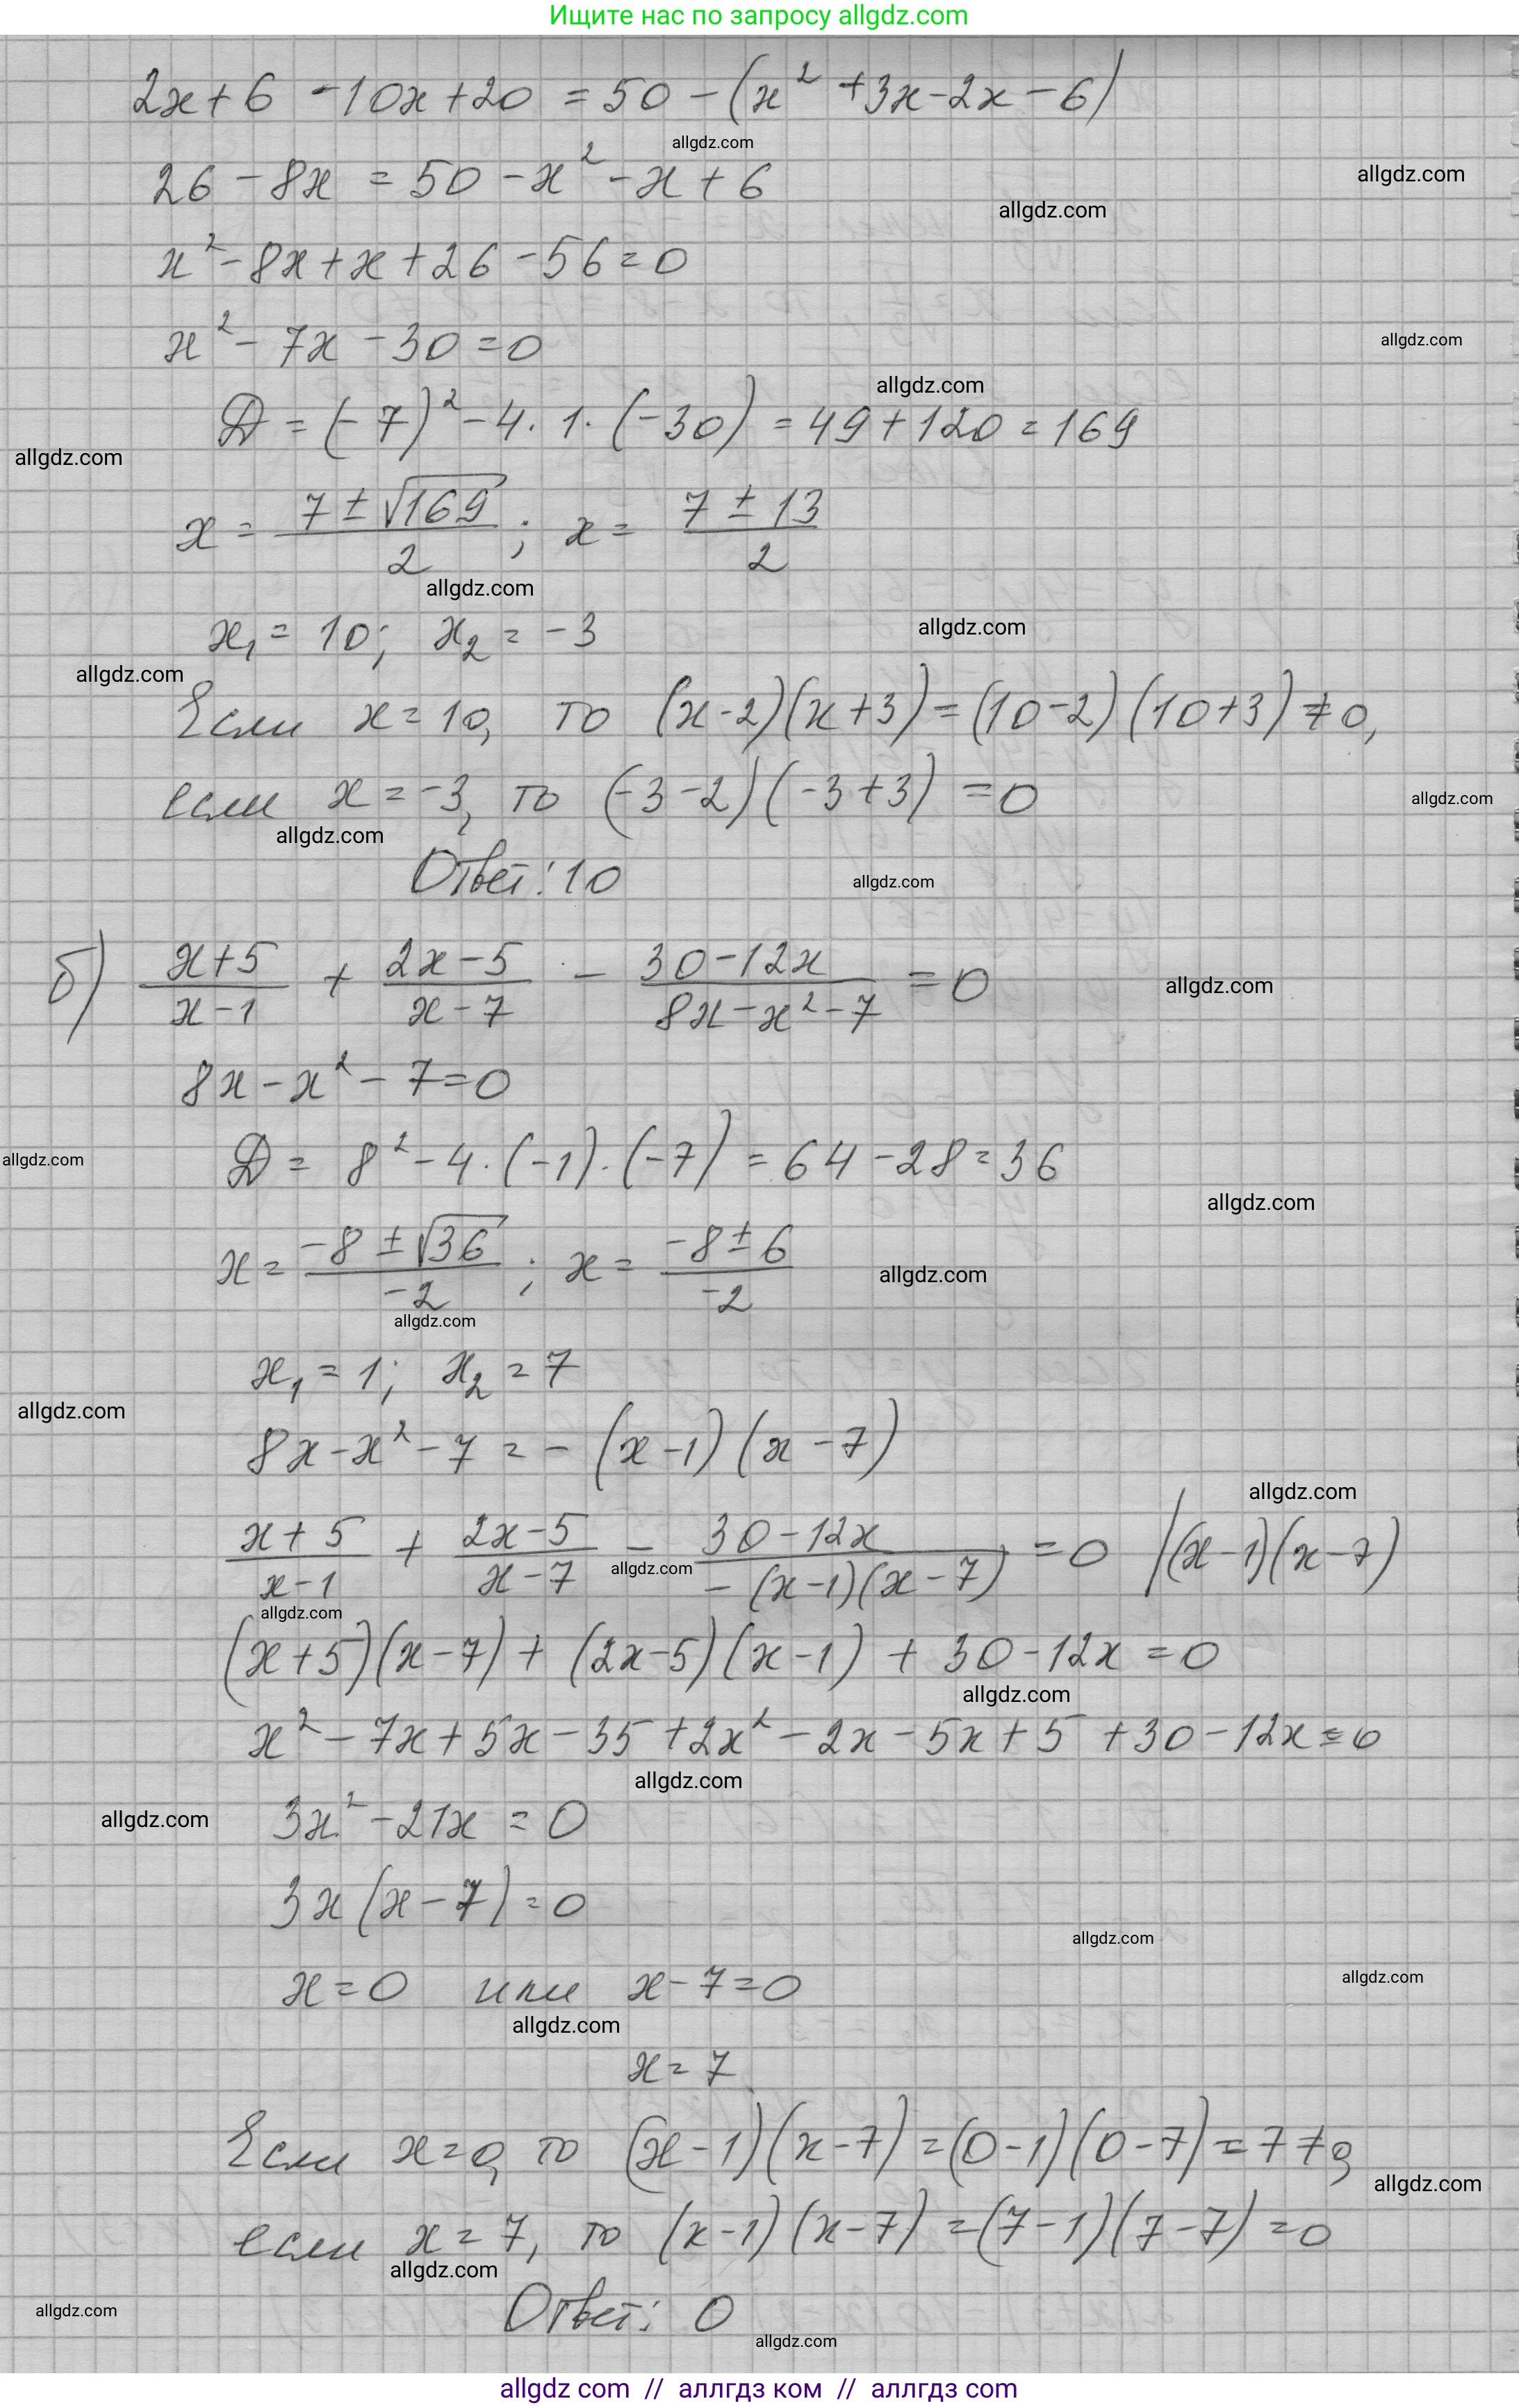 Ищите нас по запросу allgdz.com
2x+6 -10x+20 = 50 - (x² +3x-2x-6)
allgdz.com
26 - 8x = 50 - x² - x + 6
allgdz.com
allgdz.com
x² - 8x + x + 26 - 56 = 0
x² - 7x - 30 = 0
allgdz.com
allgdz.com
Д = (-7)² - 4 · 1 · (-30) = 49 + 120 = 169
allgdz.com
x = (7 ± √169)/2 ; x = (7 ± 13)/2
allgdz.com
x₁ = 10; x₂ = -3
allgdz.com
allgdz.com
Если x = 10, то (x-2)(x+3) = (10-2)(10+3) ≠ 0,
если x = -3, то (-3-2)(-3+3) = 0
allgdz.com
allgdz.com
Ответ: 10
allgdz.com
б) (x+5)/(x-1) + (2x-5)/(x-7) - (30-12x)/(8x-x²-7) = 0
allgdz.com
8x - x² - 7 = 0
Д = 8² - 4 · (-1) · (-7) = 64 - 28 = 36
allgdz.com
allgdz.com
x = (-8 ± √36)/-2 ; x = (-8 ± 6)/-2
allgdz.com
allgdz.com
x₁ = 1; x₂ = 7
allgdz.com
8x - x² - 7 = - (x-1)(x-7)
allgdz.com
(x+5)/(x-1) + (2x-5)/(x-7) - (30-12x)/(-(x-1)(x-7)) = 0 |(x-1)(x-7)
allgdz.com
allgdz.com
(x+5)(x-7) + (2x-5)(x-1) + 30 - 12x = 0
allgdz.com
x² - 7x + 5x - 35 + 2x² - 2x - 5x + 5 + 30 - 12x = 0
allgdz.com
allgdz.com
3x² - 21x = 0
3x(x-7) = 0
allgdz.com
x = 0 или x - 7 = 0
allgdz.com
allgdz.com
x = 7
Если x = 0, то (x-1)(x-7) = (0-1)(0-7) = 7 ≠ 0,
allgdz.com
если x = 7, то (x-1)(x-7) = (7-1)(7-7) = 0
allgdz.com
allgdz.com
Ответ: 0
allgdz.com
allgdz com // аллгдз ком // аллгдз com